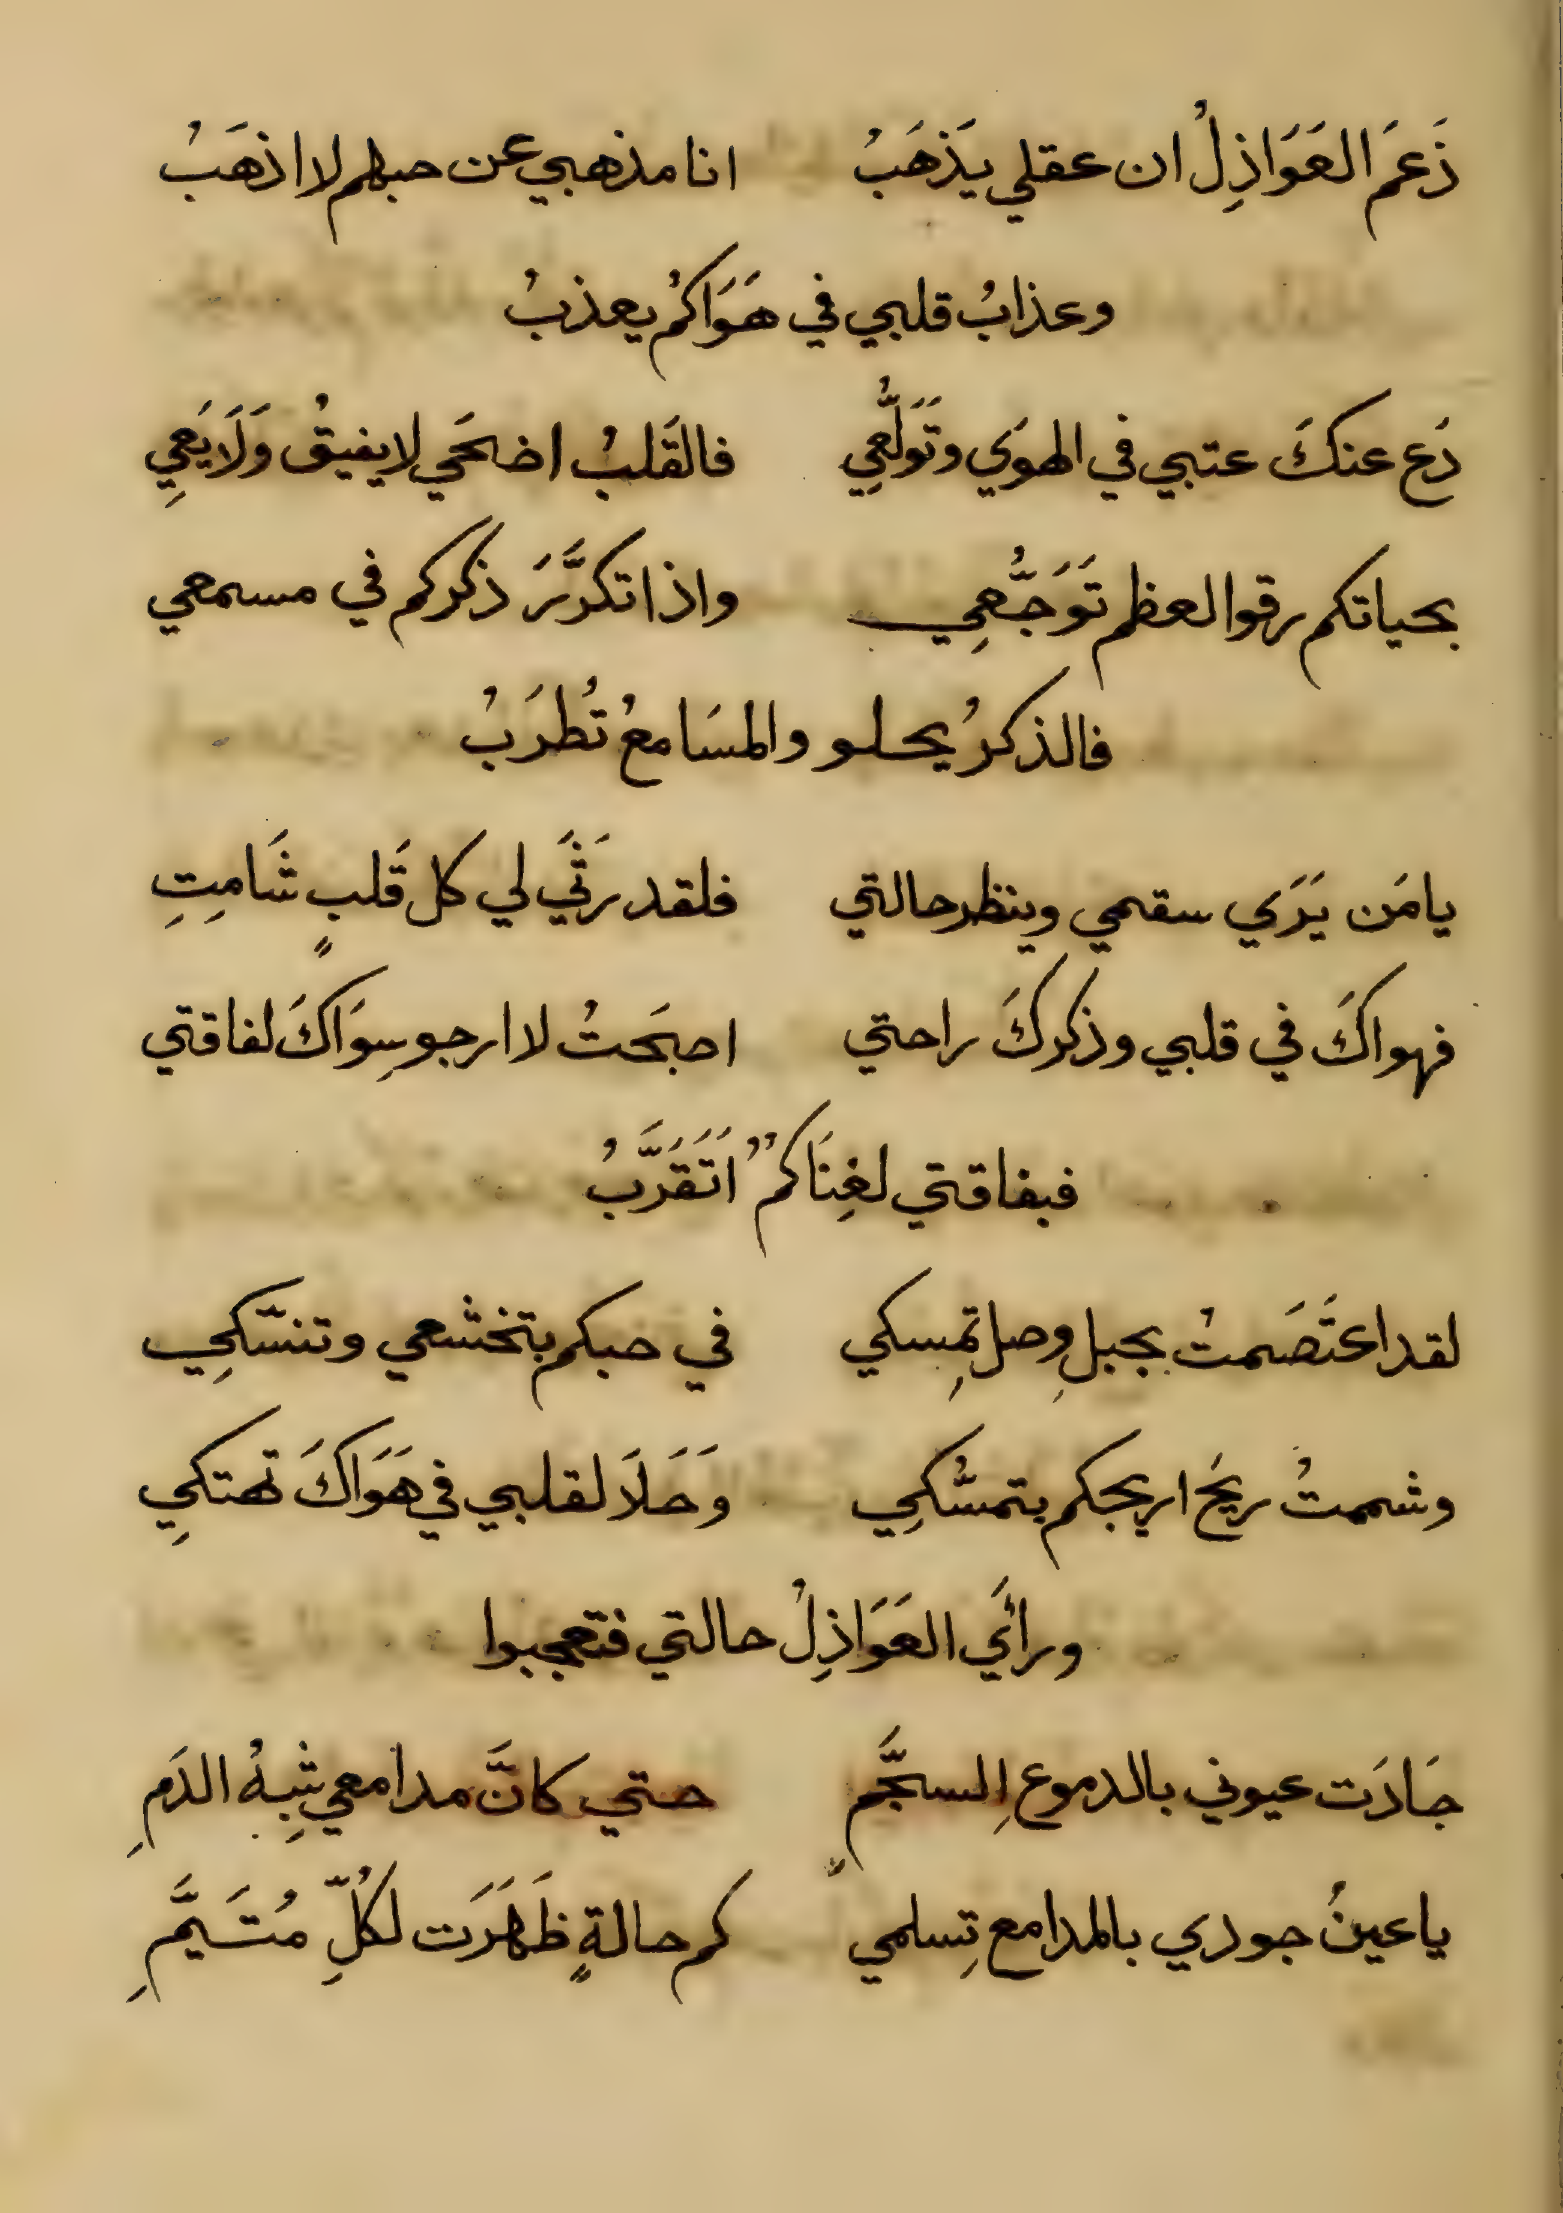 زَعَمَ العَوَاذِلُ ان عقلي يَذهَبُ انا مذهبي عن حبهم لا اذهَبُ
وعذابُ قلبي في هَوَاكمُ يعذبُ
دَع عنكَ عتبي في الهوَي وتَوَلُّعِي فالقَلبُ اضحَي لا يفيقُ وَلَا يَعِي
بحياتكم رقوا لعظم تَوَجُّعِي واذا تكرَّرَ ذكركم في مسمعي
فالذكرُ يحلو والمسَامعُ تُطرَبُ
يا مَن يَرَي سقمي وينظر حالتي فلقد رَثَي لي كل قَلبٍ شَامِتِ
فهواكَ في قلبي وذكركَ راحتي اصبَحتُ لا ارجو سِوَاكَ لفاقتي
فبفاقتي لغِنَاكمُ اَتَقَرَّبُ
لقد اعتَصَمتُ بحبلِ وصل تمِسكي في حبكم بتخشعي وتنسّكِي
وشممتُ ريحَ اريجكم بتمسُّكِي وَحَلَا لقلبي في هَوَاكَ تهتكِي
ورأَي العَوَاذِلُ حالتي فتعجبوا
جَادَت عيوني بالدموعِ السجَّمِ حتي كانَّ مدامعي شِبهُ الدَمِ
يا عينُ جودي بالمدامع تِسلمي كم حالةٍ ظَهَرَت لكُلِّ مُتَيَّمِ